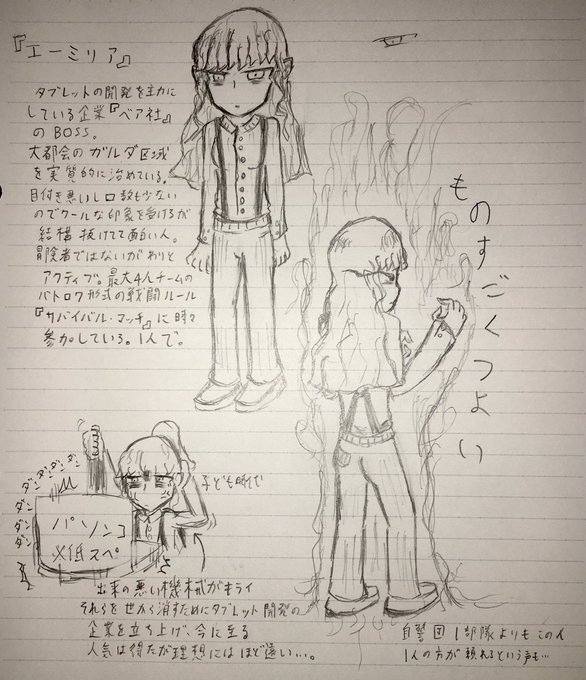 『エーミリア』
タブレットの開発を主力に
している企業『ベア社』
のBOSS。
大都会のガルダ区域
を実質的に治めている。
目付き悪いし口数も少ない
のでクールな印象を受けるが
結構抜けてて面白い人。
冒険者ではないがわりと
アクティブ。最大4人チームの
バトロワ形式の戦闘ルール
『サバイバル・マッチ』に時々
参加している。1人で。
ものすごくつよい
ダンダンダンダン
ダン
ダン
ダン
パソンコ
メ低スペ
子ども時代
出来の悪い機械がキライ
それらを世から消すためにタブレット開発の
企業を立ち上げ、今に至る
人気は得たが理想にはほど遠い…。
自警団1部隊よりもこの人
1人の方が頼れるという声も…